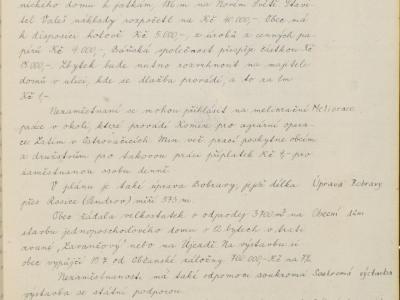 nického domu k jatkám, M.m. na Novém Světě. Stavi-
tel Valeš náklady rozpočetl na Kč 40.000,-. Obec má
k disposici hotově Kč 5.000,-, z úroků z cenných pa-
pírů Kč 9.000,-, Báňská společnost přispěje částkou Kč
13.000,-. Zbytek bude nutno rozvrhnout na majitele
domů v ulici, kde se dlažba provádí, a to za 1m
Kč 1,-
Nezaměstnaní se mohou přihlásit na meliorační Meliorace
práce v okolí, které provádí Komise pro agrární opera-
ce Zetím v Ostrovačicích Min. veř. prací poskytne obcím
a družstvům pro takovou práci příplatek Kč 9,- pro
zaměstnanou osobu denně.
V plánu je také úprava Bobravy, jejíž délka Úprava Bobravy
přes Rosice (Kendrov) měří 575 m.
Obec žádala velkostatek o odprodej 3700 m² na Obecní dům
stavbu jednoposchoďového domu o 12 bytech v trati
zvané "Zavaněový" nebo na Újezdě. Na výstavbu si
obec vypůjčí 10.7. od Občanské záložny 700.000,-Kč na 7%.
Nezaměstnanosti má také odpomoci soukromá Soukromá výstavba
výstavba se státní podporou.